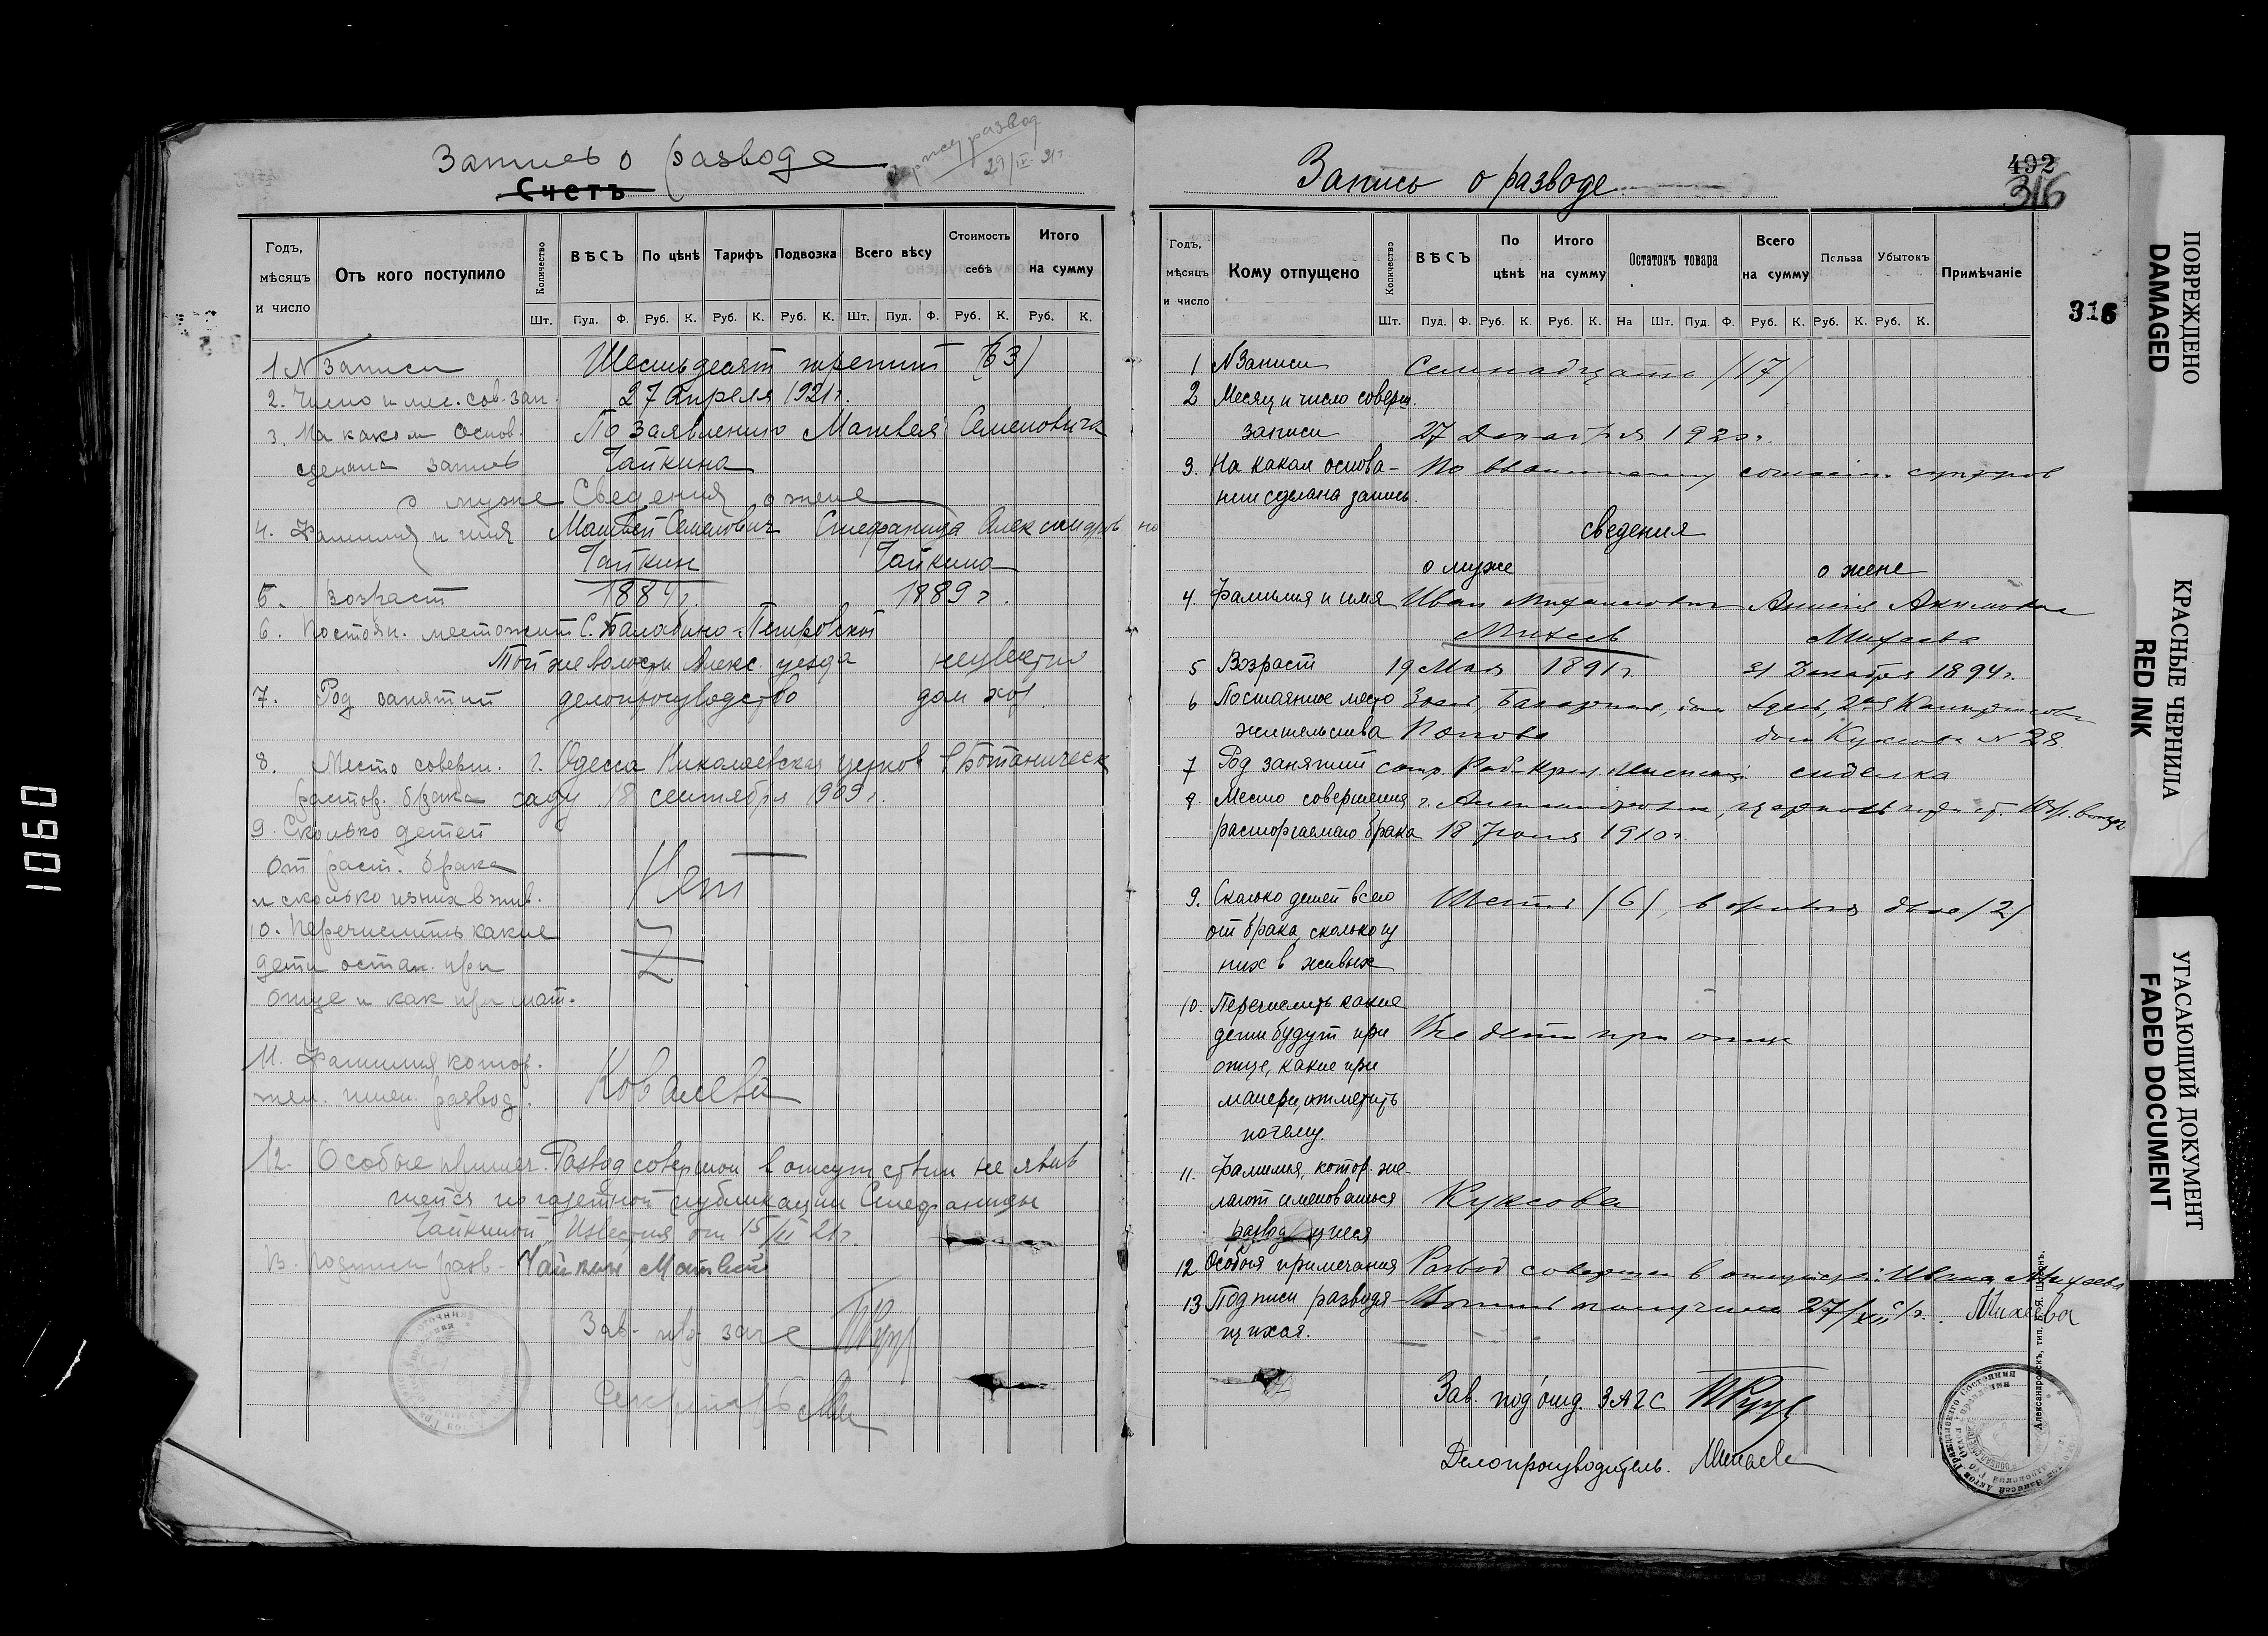 Запись о разводе
Счетъ
развод
29/IV 21 г
Годъ, мѣсяцъ и число
Отъ кого поступило
Количество
ВѢСЪ
По цѣнѣ
Тарифъ
Подвозка
Всего вѣсу
Стоимость себѣ
Итого на сумму
Шт. Пуд. Ф. Руб. К. Руб. К. Руб. К. Шт. Пуд. Ф. Руб. К. Руб. К.
1 N Записи Шестьдесят третий (63)
2. Число и мес. сов. зап. 27 апреля 1921 г.
3. На каком основ. По заявлению Матвея Семеновича
сделана запись Чайкина
о муже Сведения о жене
4. Фамилия и имя Матвей Семенович Стефанида Александровна
Чайкин Чайкина
5. Возраст 1889 г.
6. Постоян. местожит С. Балабино-Петровской
Той же волости Алекс. уезда неизвестно
7. Род занятий делопроизводство дом хоз.
8. Место соверш. г. Одесса Николаевская церков в Ботаническ
растор. брака саду 18 сентября 1909 г.
9. Сколько детей
от раст. брака Нет
и сколько из них в жив.
10. Перечислить какие
дети остан. при
отце и как при мат.
11. Фамилия котор.
жел. имен. развод. Ковалева
12. Особые примеч. Развод совершон в отсутствии не явив
шейся по газетной публикации Стефаниды
Чайкиной „Известия от 15/III 21 г.
13. Подписи разв- Чайкин Матвей
Зав- под- загс
Секретарь
Запись о разводе
492
316
316
Годъ, мѣсяцъ и число
Кому отпущено
Количество
ВѢСЪ
По цѣнѣ
Итого на сумму
Остатокъ товара
Всего на сумму
Польза
Убытокъ
Примѣчаніе
Шт. Пуд. Ф. Руб. К. Руб. К. На Шт. Пуд. Ф. Руб. К. Руб. К. Руб. К.
1 N Записи Семнадцать (17)
2 Месяц и число соверш.
записи 27 Декабря 1920 г.
3. На каком основа- По взаимному соглас. супругов
нии сделана запись.
сведения
о муже о жене
4. Фамилия и имя Иван Михайлович Акимовна
Михеев Михеева
5 Возраст 19 Мая 1891 г. 31 Декабря 1894 г.
6 Постоянное место Базарная, дом Здесь, 2ая
жительства Попова дом Куксова N 28
7 Род занятий сотр. Раб. Крест. Инспекц. сиделка
8. Место совершения г.
расторгаемого брака 18 1910 г.
9. Сколько детей всего Шесть (6), в живых двое (2)
от брака, сколько из
них в живых
10. Перечислить какие
дети будут при Все дети при отце
отце, какие при
матери, отметить
почему.
11. Фамилия, котор. же-
лают именоваться Куксова
разводящиеся
12 Особыя примечания Развод совершен в отсутств. Ивана Михеева
13 Подписи разводя- получила 27/XII с/г. Михеева
щихся.
Зав. подотд. ЗАГС
Делопроизводитель.
Александровскъ, тип. Б-я.
1060
ПОВРЕЖДЕНО
DAMAGED
КРАСНЫЕ ЧЕРНИЛА
RED INK
УГАСАЮЩИЙ ДОКУМЕНТ
FADED DOCUMENT